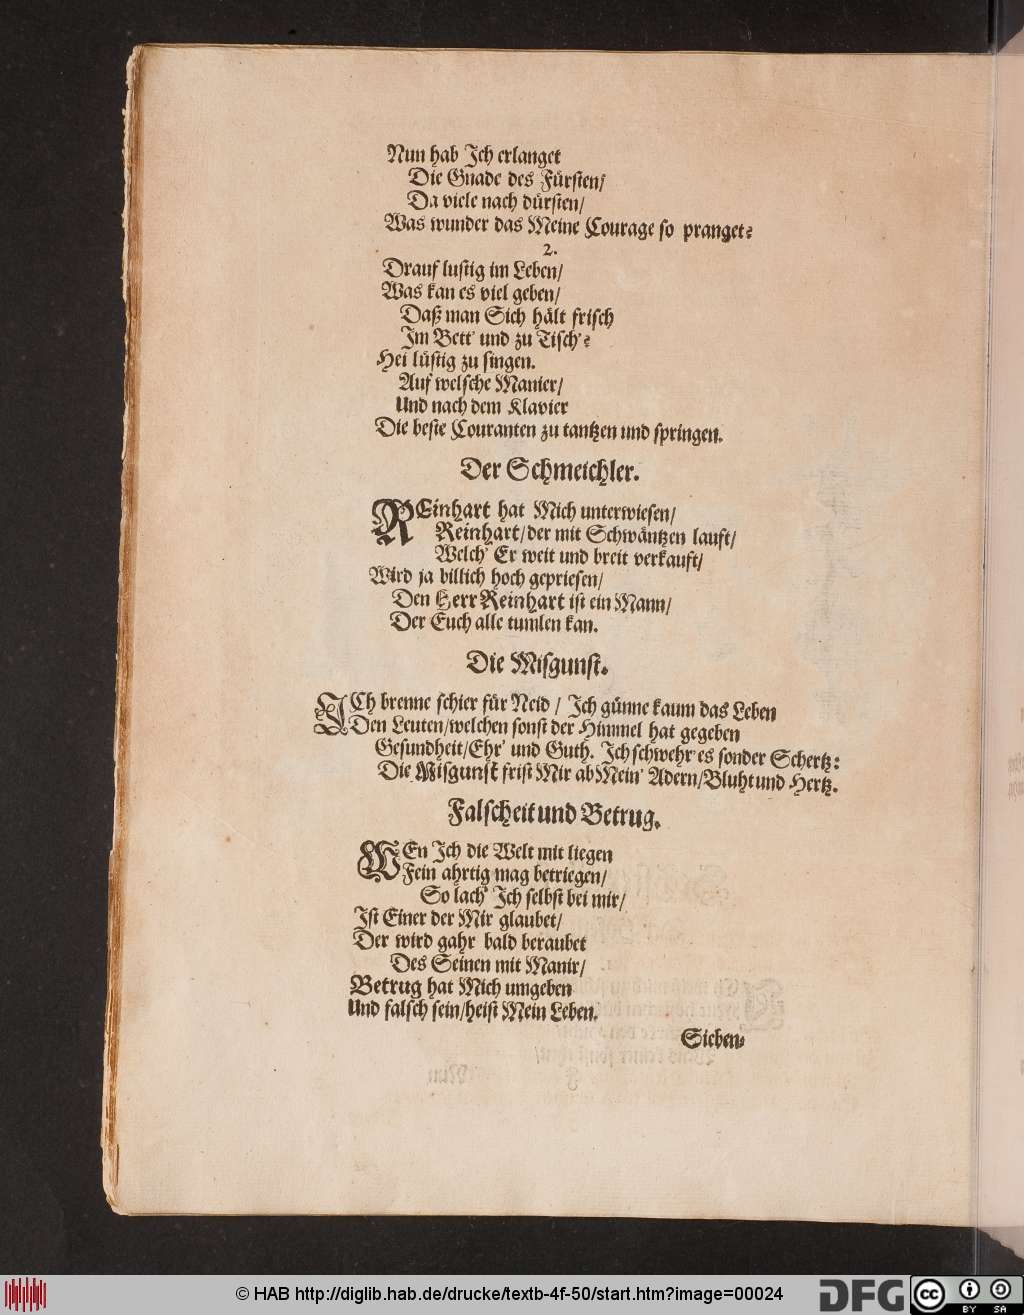 Nun hab Ich erlanget
Die Gnade des Fürsten/
Da viele nach dürsten/
Was wunder das Meine Courage so pranget?
2.
Drauf lustig im Leben/
Was kan es viel geben/
Daß man Sich hält frisch
Im Bett' und zu Tisch'?
Hei lüstig zu singen.
Auf welsche Manier/
Und nach dem Klavier
Die beste Couranten zu tantzen und springen.
Der Schmeichler.
REinhart hat Mich unterwiesen/
Reinhart/der mit Schwäntzen lauft/
Welch' Er weit und breit verkauft/
Wird ja billich hoch gepriesen/
Den Herr Reinhart ist ein Mann/
Der Euch alle tumlen kan.
Die Misgunst.
ICh brenne schier für Neid / Ich günne kaum das Leben
Den Leuten/welchen sonst der Himmel hat gegeben
Gesundheit/Ehr' und Guth. Ich schwehr' es sonder Schertz:
Die Misgunst frist Mir ab Mein' Adern/Bluht und Hertz.
Falscheit und Betrug.
WEn Ich die Welt mit liegen
Fein ahrtig mag betriegen/
So lach' Ich selbst bei mir/
Ist Einer der Mir glaubet/
Der wird gahr bald beraubet
Des Seinen mit Manir/
Betrug hat Mich umgeben
Und falsch sein/heist Mein Leben.
Sieben-
© HAB http://diglib.hab.de/drucke/textb-4f-50/start.htm?image=00024
DFG
cc
BY SA